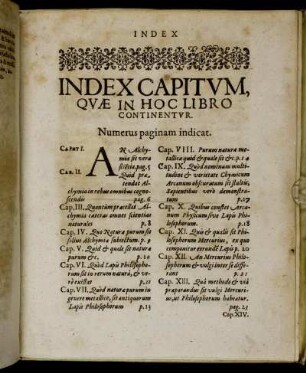 INDEX
INDEX CAPITVM,
QVÆ IN HOC LIBRO
CONTINENTVR.
Numerus paginam indicat.
CAPVT I. AN Alchy-
mia sit vera
scientia, pag. 5
Cap. II. Quid præ-
tendat Al-
chymia in rebus omnibus cogno-
scendis pag. 6
Cap. III. Quantùm præstet Al-
chymia cæteras omnes scientias
naturales 8
Cap. IV. Quæ Natura purum sit
ficitus Alchymia subiectum. p. 9
Cap. V. Quid & quale sit natura
purum &c. p. 10
Cap. VI. Quòd Lapis Philosopho-
rum sit in rerum natura, & ve-
rè existat p. 11
Cap. VII. Quid natura purum in
genere metallico, sit antiquorum
Lapis Philosophorum p. 13
Cap. VIII. Purum natura me-
tallica quid & quale sit &c. p. 14
Cap. IX. Quòd nominum multi-
tudine & varietate Chymicum
Arcanum obscurarunt stultis,
Sapientibus verò demonstra-
runt
Cap. X. Quibus constet Arca-
num Physicum siue Lapis Philo-
sophorum. p. 18
Cap. XI. Quis & qualis sit Phi-
losophorum Mercurius, ex quo
componitur arcanus Lapis p. 20
Cap. XII. An Mercurius Philo-
sophorum & vulgi inter se diffe-
rant p. 21
Cap. XIII. Quâ methodo & viâ
præparandus sit vulgi Mercu-
rius, ut Philosophorum habeatur.
pag. 23
Cap. XIV.